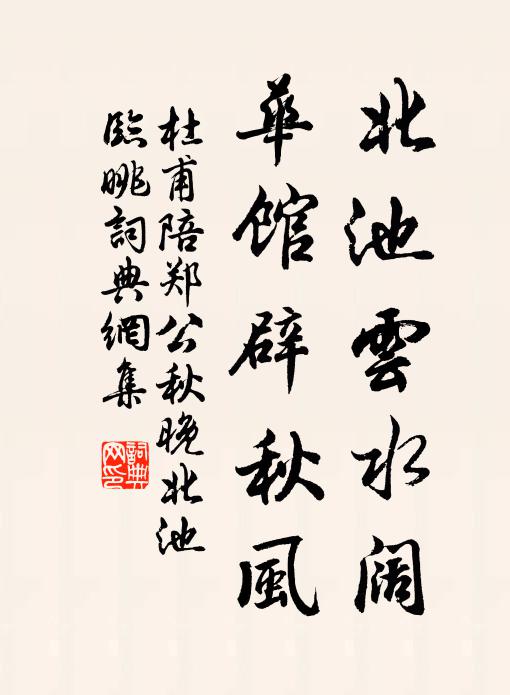 北池雲水阔
華馆辟秋風
杜甫陪郑公秋晚北池
臨眺詞典網集
詞典
网印